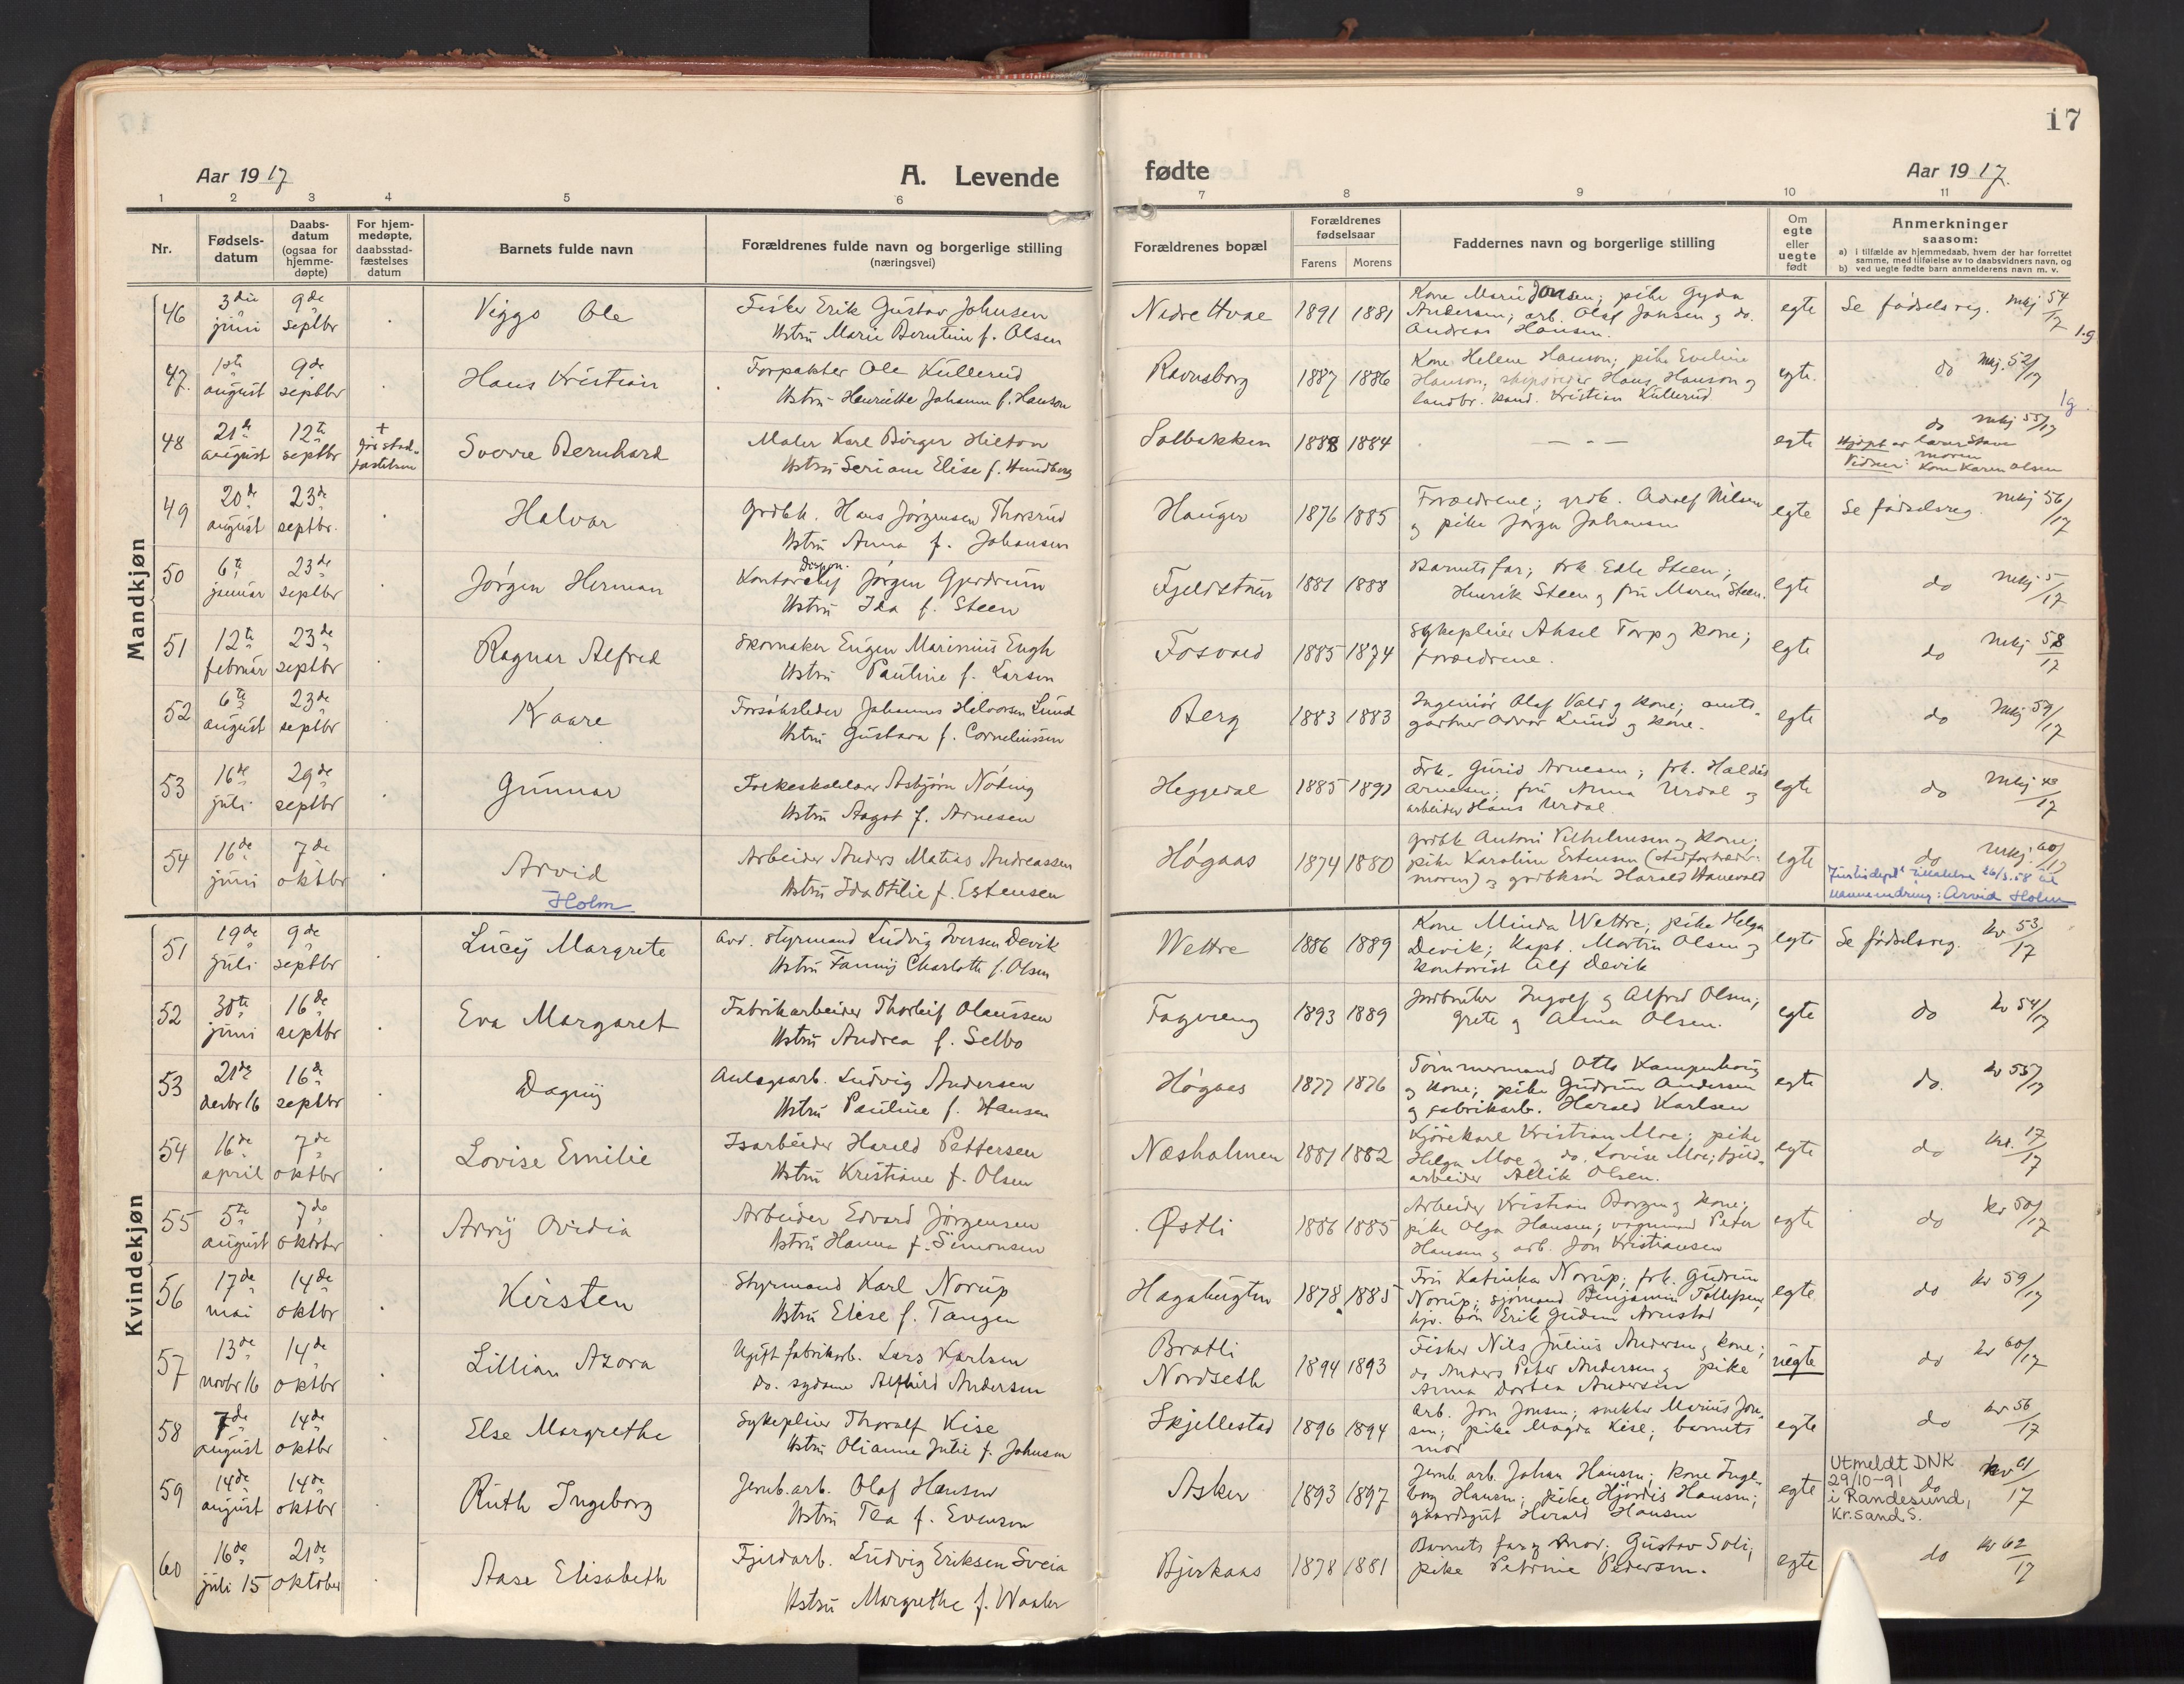 17
Aar 1917
A. Levende
fødte
Aar 1917.
1 2 3 4 5 6 7 8 9 10 11
Nr.
Fødsels-
datum
Daabs-
datum
(ogsaa for
hjemme-
døpte)
For hjem-
medøpte,
daabsstad-
fæstelses
datum
Barnets fulde navn
Forældrenes fulde navn og borgerlige stilling
(næringsvei)
Forældrenes bopæl
Forældrenes
fødselsaar
Farens Morens
Faddernes navn og borgerlige stilling
Om
egte
eller
uegte
født
Anmerkninger
saasom:
a) i tilfælde av hjemmedaab, hvem der har forrettet
samme, med tilføielse av to daabsvidners navn, og
b) ved uegte fødte barn anmelderens navn m. v.
Mandkjøn
46 3die juni 9de septbr Viggo Ole
Fisker Erik Gustav Johnsen
Hstru Marie Berntine f. Olsen
Nedre Hvae 1891 1881
Kone Marie Jonsen; pike Gyda
Andersen; arb. Olaf Jansen g do.
Andreas Hansen.
egte Se fødselsreg. Mkj 54/17
1.g
47. 1ste august 9de septbr Hans Kristian
Forpakter Ole Kullerud
Hstru Henriette Johanne f. Hanson
Ravnsborg 1887 1886
Kone Helene Hanson; pike Eveline
Hanson; skipsreder Hans Hanson og
landbr. kand. Kristian Kullerud.
egte. do Mkj. 52/17
1g.
48 21de august 12te septbr Sverre Bernhard
Maler Karl Birger Hilton
Hstru Seriane Elise f. Hundberg
Solbakken 1888 1884
egte do Mkj 55/17
Hjdøpt av lærer Stave
Vidner: moren
Kone Karen Olsen
49 20de august 23de septbr. Halvor
Grdbk. Hans Jørgensen Thorsrud
Hstru Anna f. Johansen
Hauger 1876 1885
Forældrene; grdb. Adolf Nilsen
og pike Jørga Johansen
egte Se fødselsreg. Mkj 56/17
50 6te januar 23de septbr Jørgen Herman
Dispon.
Kontorchef Jørgen Gjerdrum
Hstru Ida f. Steen
Fjeldstuen 1881 1888
Barnets far; frk Edle Steen;
Henrik Steen g fru Maren Steen.
egte do Mkj 5/17
51 12te februar 23de septbr Ragnar Alfred
Skomaker Eugen Marinius Engh
Hstru Pauline f. Larsen
Fosvold 1885 1874
Sykepleier Aksel Torp g kone;
forældrene.
egte do Mkj 58/17
52 6te august 23de septbr Kaare
Forsøksleder Johannes Halvorsen Lund
Hstru Gustava f. Corneliussen
Berg 1883 1883
Ingeniør Olaf Vold g kone; amts-
gartner Odvar Lund g kone.
egte do Mkj 59/17
53 16de juli 29de septbr Gunnar
Folkeskolelærer Asbjørn Nøding
Hstru Aagot f. Arnesen
Heggedal 1885 1891
Frk. Gurid Arnesen; frk. Haldis
Arnesen; fru Anna Urdal og
arbeider Hans Urdal.
egte do Mkj 43/17
54 16de juni 7de oktbr Arvid
Holm
Arbeider Anders Matias Andreassen
Hstru Ida Otilie f. Estensen
Høgaas 1874 1880
grdbk Antoni Vilhelmsen g kone;
pike Karoline Estensen (stedfortræder
moren) g grdbksøn Harald Hanevold
egte do Mkj. 60/17
Justisdept tillatelse 26/3.58 til
navneendring: Arvid Holm
Kvindekjøn
51 19de juli 9de septbr Lucy Margrete
Avd. styrmand Ludvig Iversen Devik
Hstru Fanny Charlotte f. Olsen
Wettre 1886 1889
Kone Minda Wettre; pike Helga
Devik; kapt. Martin Olsen g
kontorist Alf Devik
egte Se fødselsreg. Kv 53/17
52 30te juni 16de septbr Eva Margaret
Fabrikarbeider Thorleif Olaussen
Hstru Andrea f. Selbo
Fagereng 1893 1889
Jordbruker Ingolf g Alfred Olsen;
Grete g Alma Olsen.
egte do Kv 54/17
53 21de desbr 16 16de septbr Dagny
Anlegsarb. Ludvig Andersen
Hstru Pauline f. Hansen
Høgaas 1877 1876
Tømmermand Otto Kampenborg
g kone; pike Gudrun Andersen
g fabrikarb. Harald Karlsen
egte do. Kv 55/17
54 16de april 7de oktbr Lovise Emilie
Isarbeider Harald Pettersen
Hstru Kristiane f. Olsen
Næsholmen 1881 1882
Kjørekarl Kristian Moe; pike
Helga Moe g do. Lovise Moe; fjeld-
arbeider Allik Olsen.
egte do Kv. 17/17
55 5te august 7de oktober Arvy Ovidia
Arbeider Edvard Jørgensen
Hstru Hanna f. Simonsen
Østli 1886 1885
Arbeider Kristian Borgen g kone;
pike Olga Hansen; vognmand Peder
Hansen g arb. Jon Kristiansen
egte do Kv 50/17
56 17de mai 14de oktbr Kirsten
Styrmand Karl Norup
Hstru Elise f. Tangen
Hagabugten 1878 1885
Fru Katinka Norup; frk. Gudrun
Norup; sjømand Benjamin Tollefsen;
Erik Gudem Arnestad
egte do Kv 59/17
57 13de novbr 16 14de oktbr Lillian Azora
Ugift fabrikarb. Lars Karlsen
do. sydame Alfhild Andersen
Bratli
Nordseth 1894 1893
Fisker Nils Julius Andersen g kone;
do Anders Peter Andersen g pike
Anna Dortea Andersen
uegte do Kv 60/17
58 7de august 14de oktbr Else Margrethe
Sykepleier Thoralf Kise
Hstru Olianne Julie f. Johnsen
Skjellestad 1896 1894
Arb. Jon Jonsen; snekker Marius Jon-
sen; pike Magda Kise; barnets
mor
egte do Kv 56/17
59 14de august 14de oktbr Ruth Ingeborg
Jernb.arb. Olaf Hansen
Hstru Tea f. Evensen
Asker 1893 1897
Jernb. arb. Johan Hansen; kone Inge-
borg Hansen; pike Hjørdis Hansen;
gaardsgut Harald Hansen
egte do Kv 61/17
Utmeldt DNK
29/10-91
i Randesund,
Kr.sand S.
60 16de juli 15 21de oktober Aase Elisabeth
Fjeldarb. Ludvig Eriksen Sveia
Hstru Margrethe f. Waaler
Bjerkaas 1878 1881
Barnets far g mor; Gustav Soli;
pike Petrine Pedersen.
egte do Kv 62/17